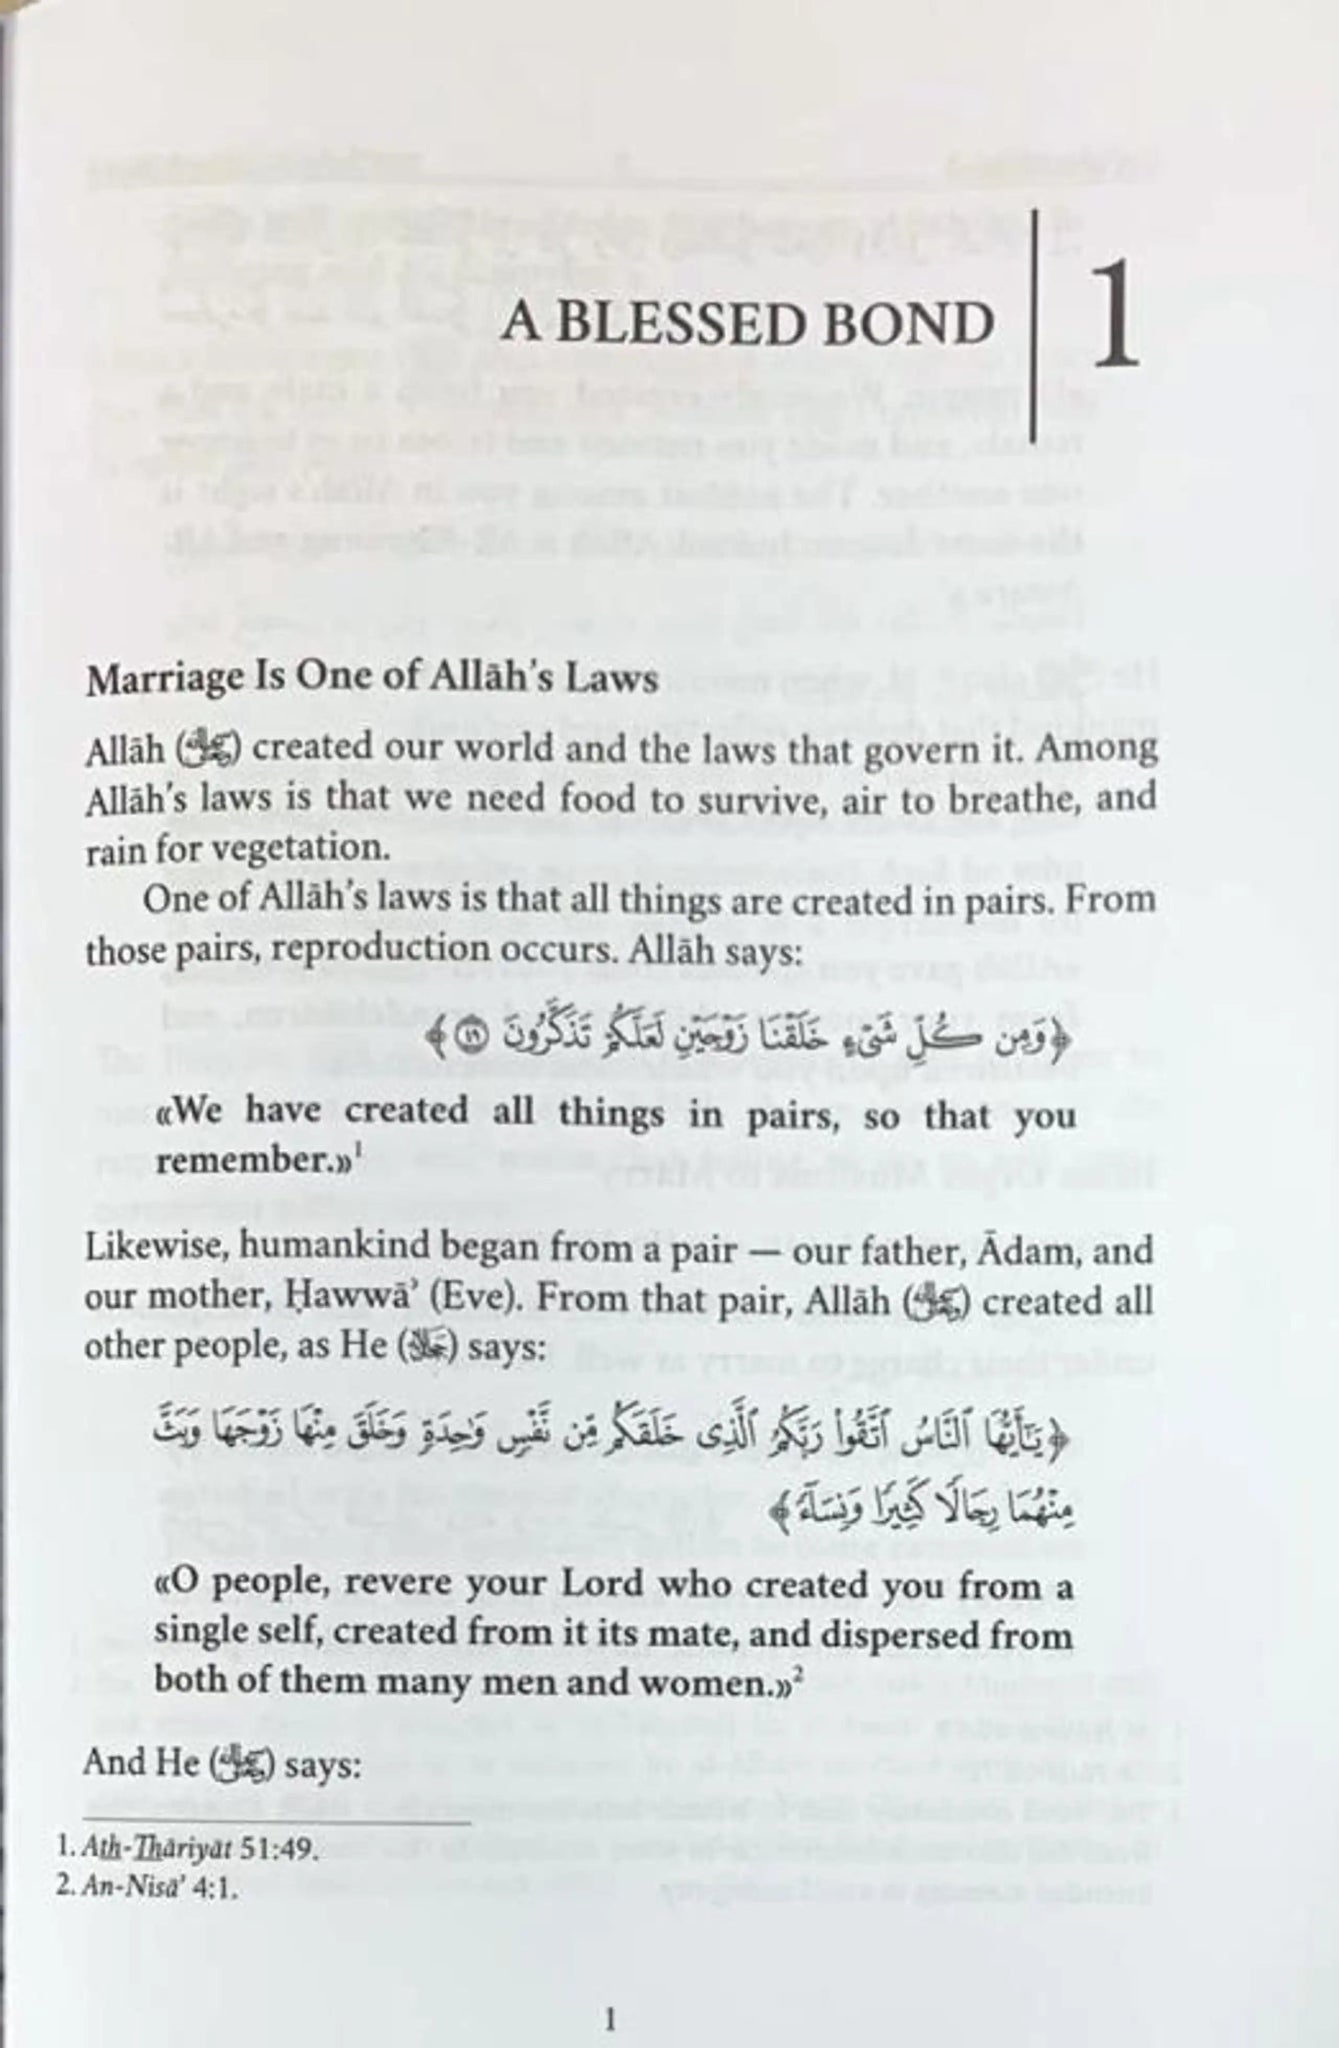 A BLESSED BOND
1
Marriage Is One of Allāh's Laws
Allāh (ﷻ) created our world and the laws that govern it. Among
Allāh's laws is that we need food to survive, air to breathe, and
rain for vegetation.
One of Allāh's laws is that all things are created in pairs. From
those pairs, reproduction occurs. Allāh says:
﴿وَمِن كُلِّ شَىْءٍ خَلَقْنَا زَوْجَيْنِ لَعَلَّكُمْ تَذَكَّرُونَ ٤٩﴾
«We have created all things in pairs, so that you
remember.»¹
Likewise, humankind began from a pair — our father, Ādam, and
our mother, Ḥawwā’ (Eve). From that pair, Allāh (ﷻ) created all
other people, as He (ﷻ) says:
﴿يَـٰٓأَيُّهَا ٱلنَّاسُ ٱتَّقُوا۟ رَبَّكُمُ ٱلَّذِى خَلَقَكُم مِّن نَّفْسٍ وَٰحِدَةٍ وَخَلَقَ مِنْهَا زَوْجَهَا وَبَثَّ
مِنْهُمَا رِجَالًا كَثِيرًا وَنِسَآءً﴾
«O people, revere your Lord who created you from a
single self, created from it its mate, and dispersed from
both of them many men and women.»²
And He (ﷻ) says:
1. Ath-Thāriyāt 51:49.
2. An-Nisā’ 4:1.
1